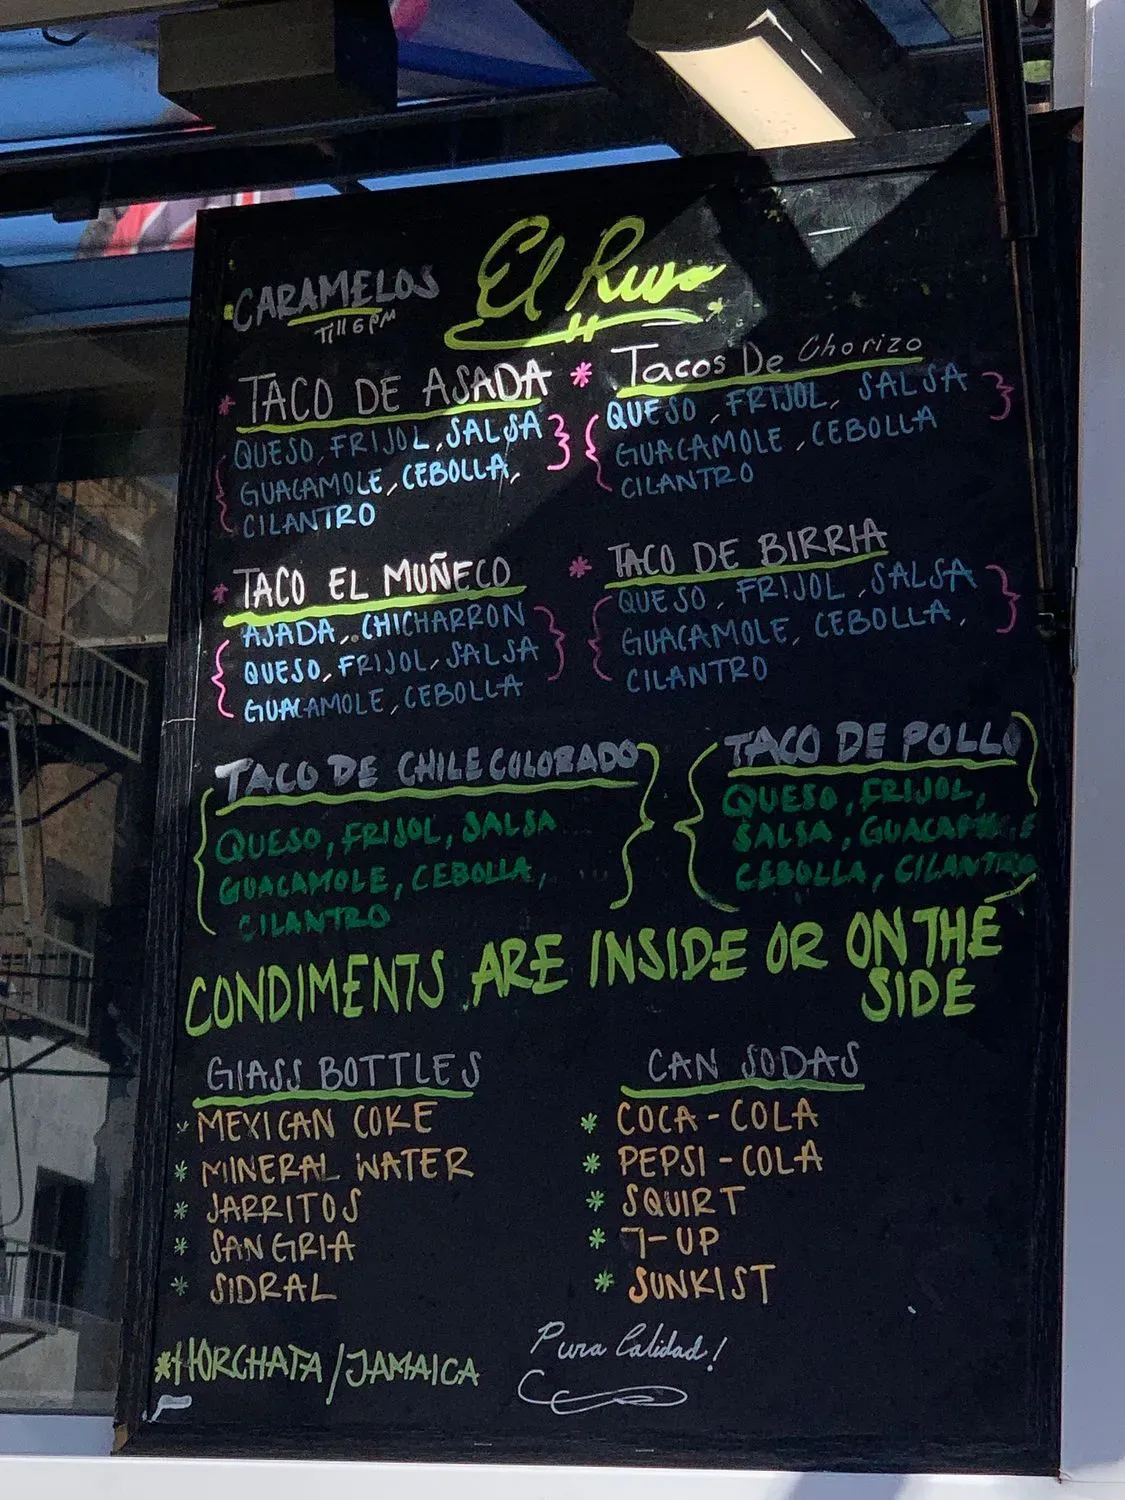 El Ruso
CARAMELOS
Till 6 PM
* TACO DE ASADA
QUESO, FRIJOL, SALSA
GUACAMOLE, CEBOLLA,
CILANTRO
* Tacos De Chorizo
QUESO, FRIJOL, SALSA
GUACAMOLE, CEBOLLA
CILANTRO
* TACO EL MUÑECO
ASADA, CHICHARRON
QUESO, FRIJOL, SALSA
GUACAMOLE, CEBOLLA
* TACO DE BIRRIA
QUESO, FRIJOL, SALSA
GUACAMOLE, CEBOLLA,
CILANTRO
TACO DE CHILE COLORADO
QUESO, FRIJOL, SALSA
GUACAMOLE, CEBOLLA,
CILANTRO
TACO DE POLLO
QUESO, FRIJOL,
SALSA, GUACAMOLE
CEBOLLA, CILANTRO
CONDIMENTS ARE INSIDE OR ON THE
SIDE
GLASS BOTTLES
* MEXICAN COKE
* MINERAL WATER
* JARRITOS
* SANGRIA
* SIDRAL
CAN SODAS
* COCA-COLA
* PEPSI-COLA
* SQUIRT
* 7-UP
* SUNKIST
*HORCHATA/JAMAICA
Pura Calidad!